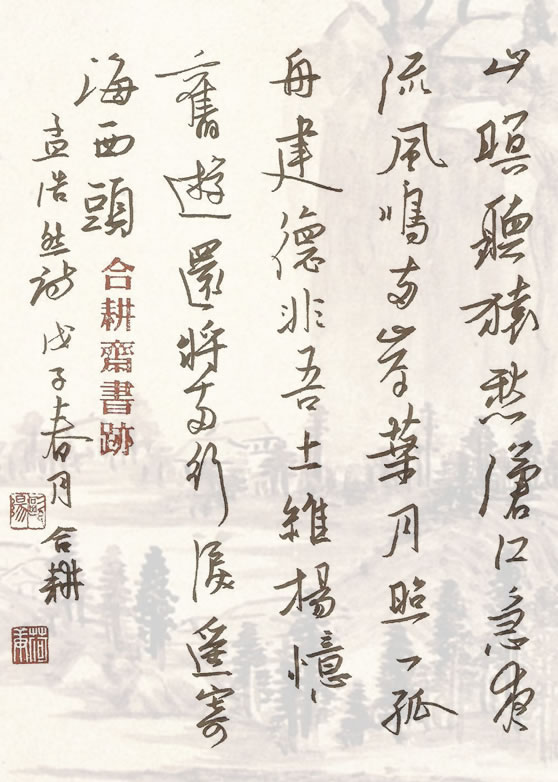 山暝聽猿愁滄江急夜
流風鳴兩岸葉月照一孤
舟建德非吾土維揚憶
舊遊還將兩行淚遙寄
海西頭
合耕齋書跡
孟浩然詩戊子春月合耕
歐陽